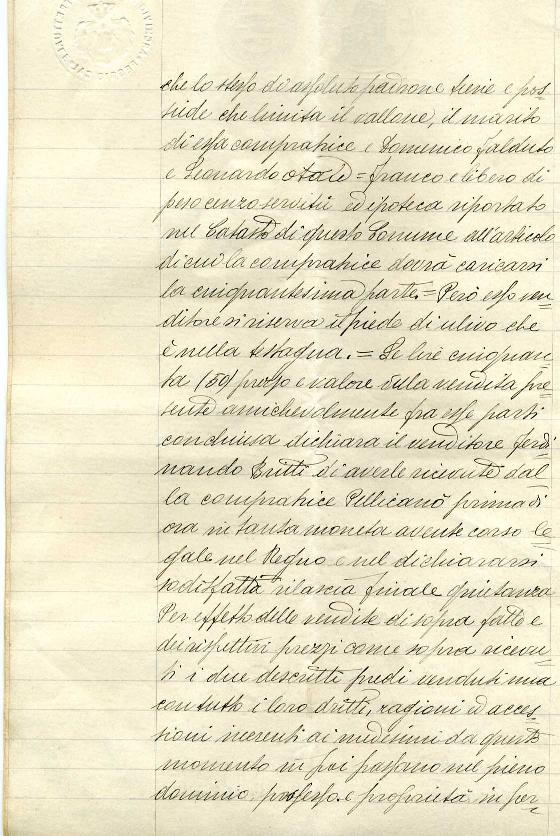 che lo stesso di assoluto padrone tiene e pos-
siede che limita il vallone, il marito
di essa compratrice e Domenico Falduto
e Leonardo = franco e libero di
peso cenzo servitù ed ipoteca riportato
nel Catasto di questo Comune all'articolo
di cui la compratrice dovrà caricarsi
la cinquantesima parte. = Però esso ven=
ditore si riserva il piede di ulivo che
è nella testagna. = Le lire cinquan=
ta (50) prezzo e valore della vendita pre=
sente amichevolmente fra esse parti
conchiusa dichiara il venditore Ferdi=
nando Britti di averle ricevute dal=
la compratrice Pellicanò prima di
ora in tanta moneta avente corso le=
gale nel Regno e nel dichiararsi
sodisfatto rilascia finale quietanza
Per effetto delle vendite di sopra fatte e
dei rispettivi prezzi come sopra ricevu=
ti i due descritti fondi venduti
con tutti i loro dritti, ragioni ed acces=
sioni inerenti ai medesimi da questo
momento in poi passano nel pieno
dominio, possesso e proprietà in per=